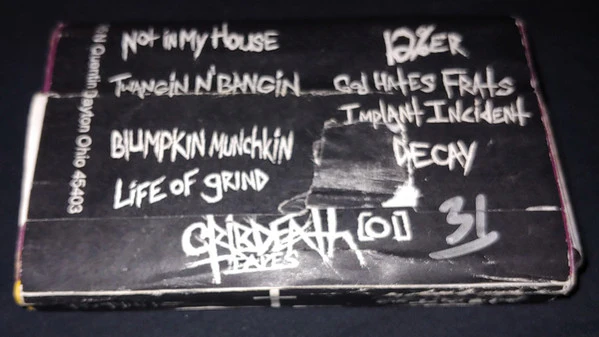 Not in My House
Twangin N' Bangin
Blumpkin Munchkin
Life of Grind
12%er
God Hates Frats
Implant Incident
Decay
Cribdeath
Tapes
[O]
31
N Quentin Dayton Ohio 45403